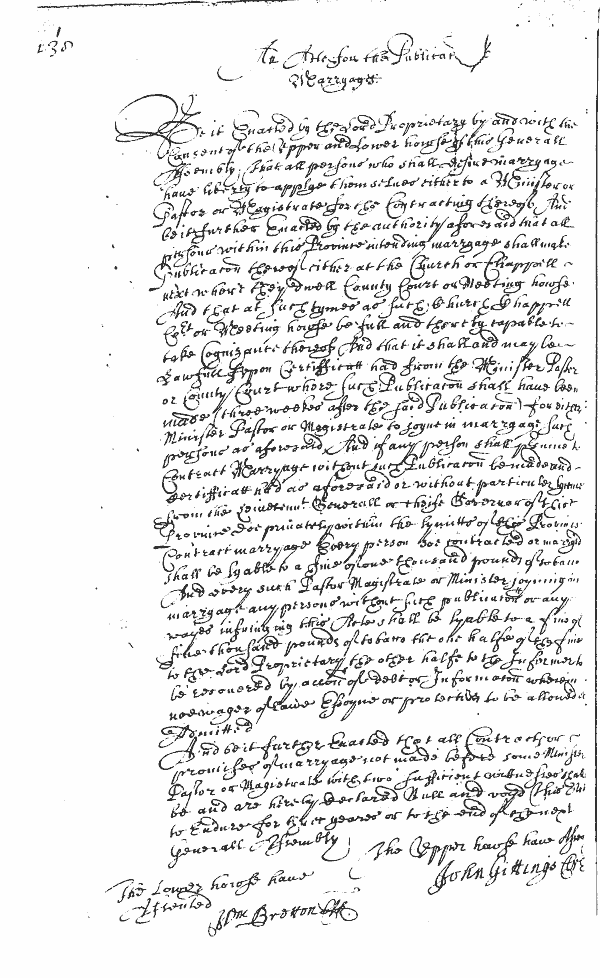 138
An Acte for the Publicacon
Marryages
Be it Enacted by the Lord Proprietary by and with the
Consent of the Upper and Lower howse of this Generall
Assembly, that all persons who shall desire marryage
have liberty to applye themselves either to a Minister or
Pastor or Magistrate for the Contracting thereof. And
be it further Enacted by the authority aforesaid that all
persons within this Province intending marryage shall make
Publicacon thereof either at the Church or Chappell
next where they dwell County Court or Meeting howse
And that at such tymes as such Church Chappell
Court or Meeting howse be full and thereby capable to
take Cognizance thereof And that it shall and may be
Lawfull upon Certifficatt had from the Minister Pastor
or County Court where such Publicacon shall have been
made (three weekes after the said Publicacon) for either
Minister Pastor or Magistrate to Joyne in marryage such
persons as aforesaid, And if any person shall
Contract Marryage without such Publicacon be made and
Certifficatt had as aforesaid or without particular
from the Leivetent Generall or cheife Governor of this
Province doe privately within the lymitts of this Province
Contract marryage Every person soe contracted or marryed
shall be lyable to a fine of one thousand pounds of tobacco
And every such Pastor Magistrate or Minister joyning in
marryage any persons without such publicacon or any
wayes infringing this Acte shall be lyable to a fine of
five thousand pounds of tobacco the one halfe of the fine
to the Lord Proprietary the other halfe to the Informer to
be recovered by accon of debt or Informacon wherein
noe wager of Lawe Essoyne or protection to be allowed or
Admitted
And be it further Enacted that all Contracts or
promises of marryage not made before some Minister
Pastor or Magistrate with two sufficient wittnesses shall
be and are hereby declared Null and voyd This Act
to Endure for three yeares or to the end of the next
Generall Assembly
The Upper howse have Assented
John Gittings Clre
The Lower howse have
Assented
Wm Bretton Clk